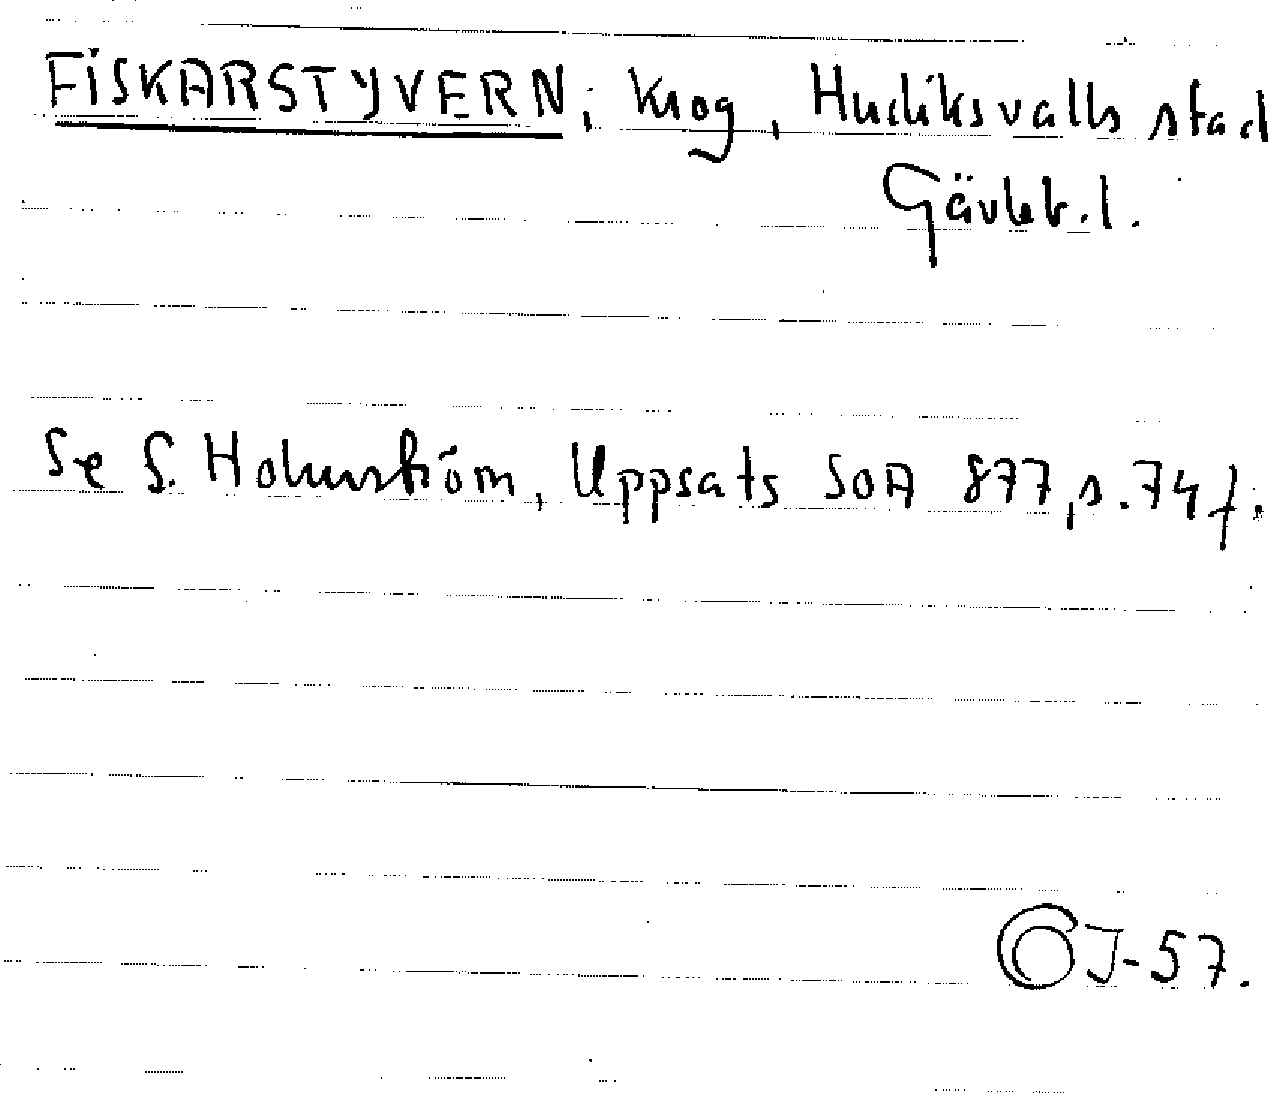 FISKARSTYVERN; krog, Hudiksvalls stad
Gävleb.l.
Se S. Holmström, Uppsats SOA 877, s. 74 f.
OJ-57.